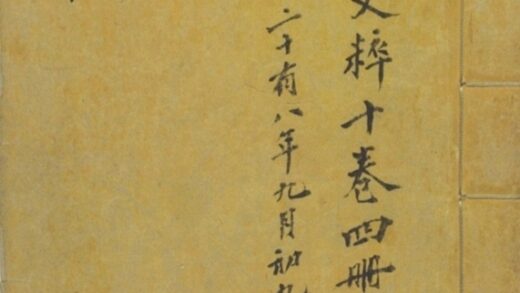 文粹十卷四册
二十有八年九月初九